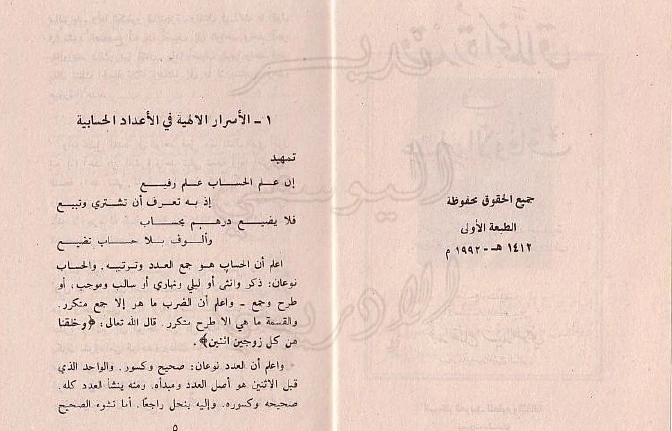 جميع الحقوق محفوظة
الطبعة الأولى
١٤١٢ هـ - ١٩٩٢ م
١ - الأسرار الالهية في الأعداد الحسابية
تمهيد
إن علم الحساب علم رفيع
إذ به تعرف أن تشتري وتبيع
فلا يضيع درهم بحساب
وألوف بلا حساب تضيع
اعلم أن الحساب هو جمع العدد وترتيبه. والحساب
نوعان: ذكر وانثى أو ليلي ونهاري أو سالب وموجب، أو
طرح وجمع - واعلم أن الضرب ما هو إلا جمع متكرر.
والقسمة ما هي الا طرح متكرر. قال الله تعالى: ﴿وخلقنا
من كل زوجين اثنين﴾.
واعلم أن العدد نوعان: صحيح وكسور. والواحد الذي
قبل الاثنين هو أصل العدد ومبدأه. ومنه ينشأ العدد كله.
صحيحه وكسوره. وإليه ينحل راجعاً. أما نشوء الصحيح
٥